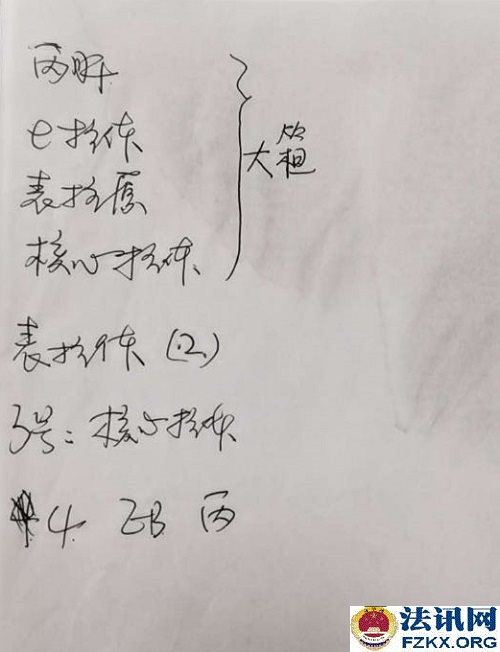 丙肝
e抗体
表抗原
核心抗体
大箱
表抗体 (2)
3号: 核心抗体
4 丙
法讯网
FZKX.ORG